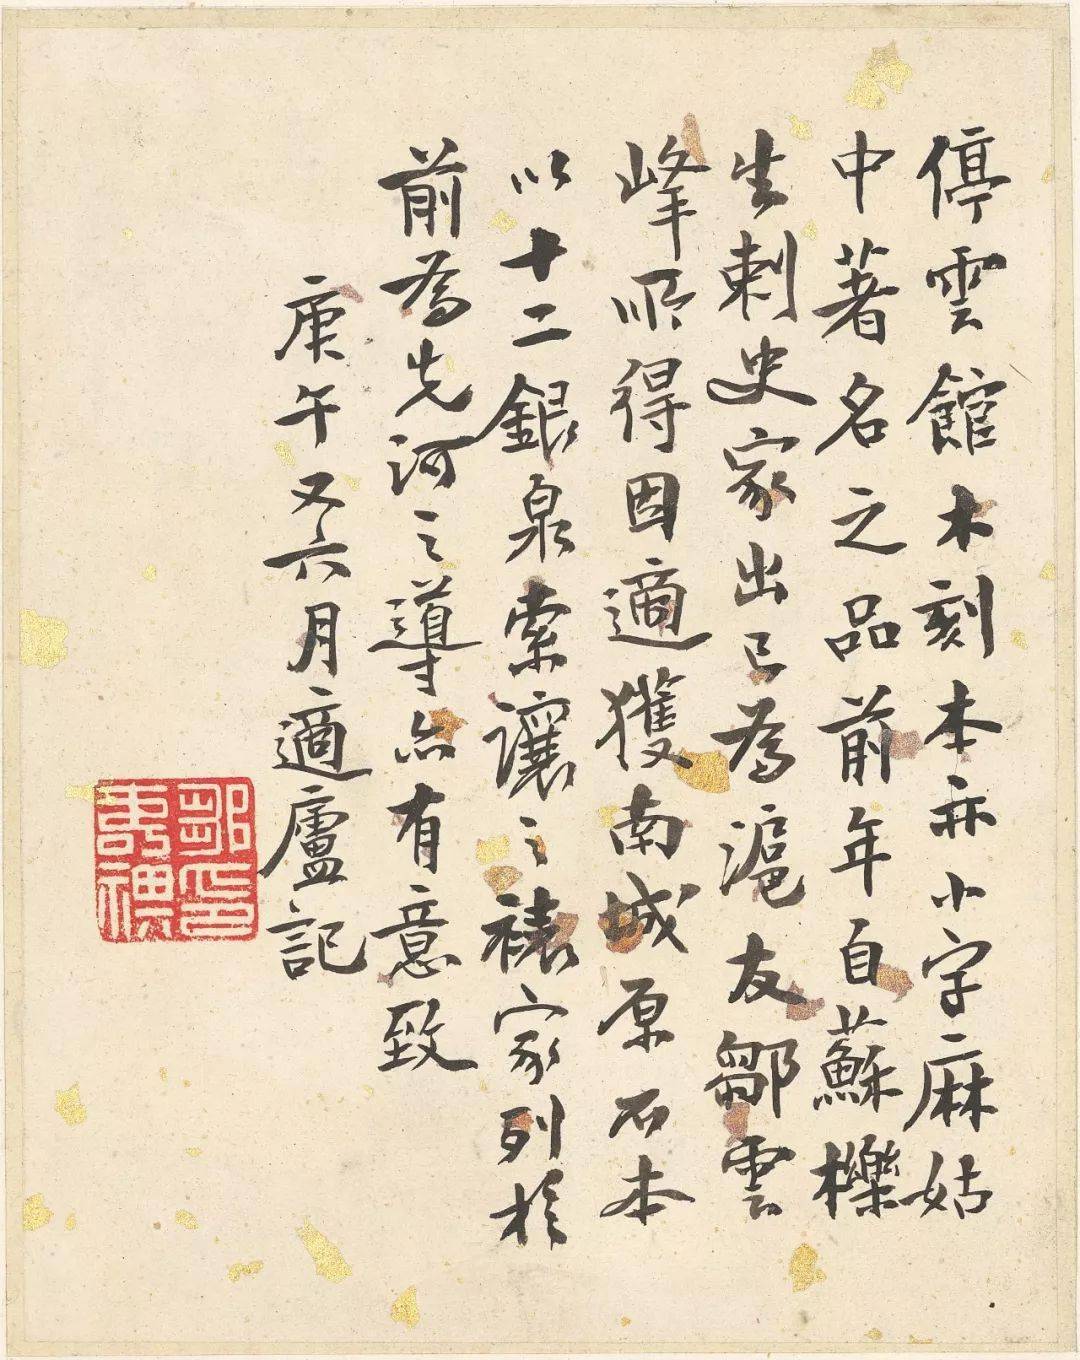 停雲館木刻本亦小字麻姑
中著名之品前年自蘇櫟
生刺史家出已為滬友鄒雲
峰所得因適獲南城原石本
以十二銀泉索讓之裱家列於
前為先河之導亦有意致
庚午又六月適廬記
鄒印
壽祺